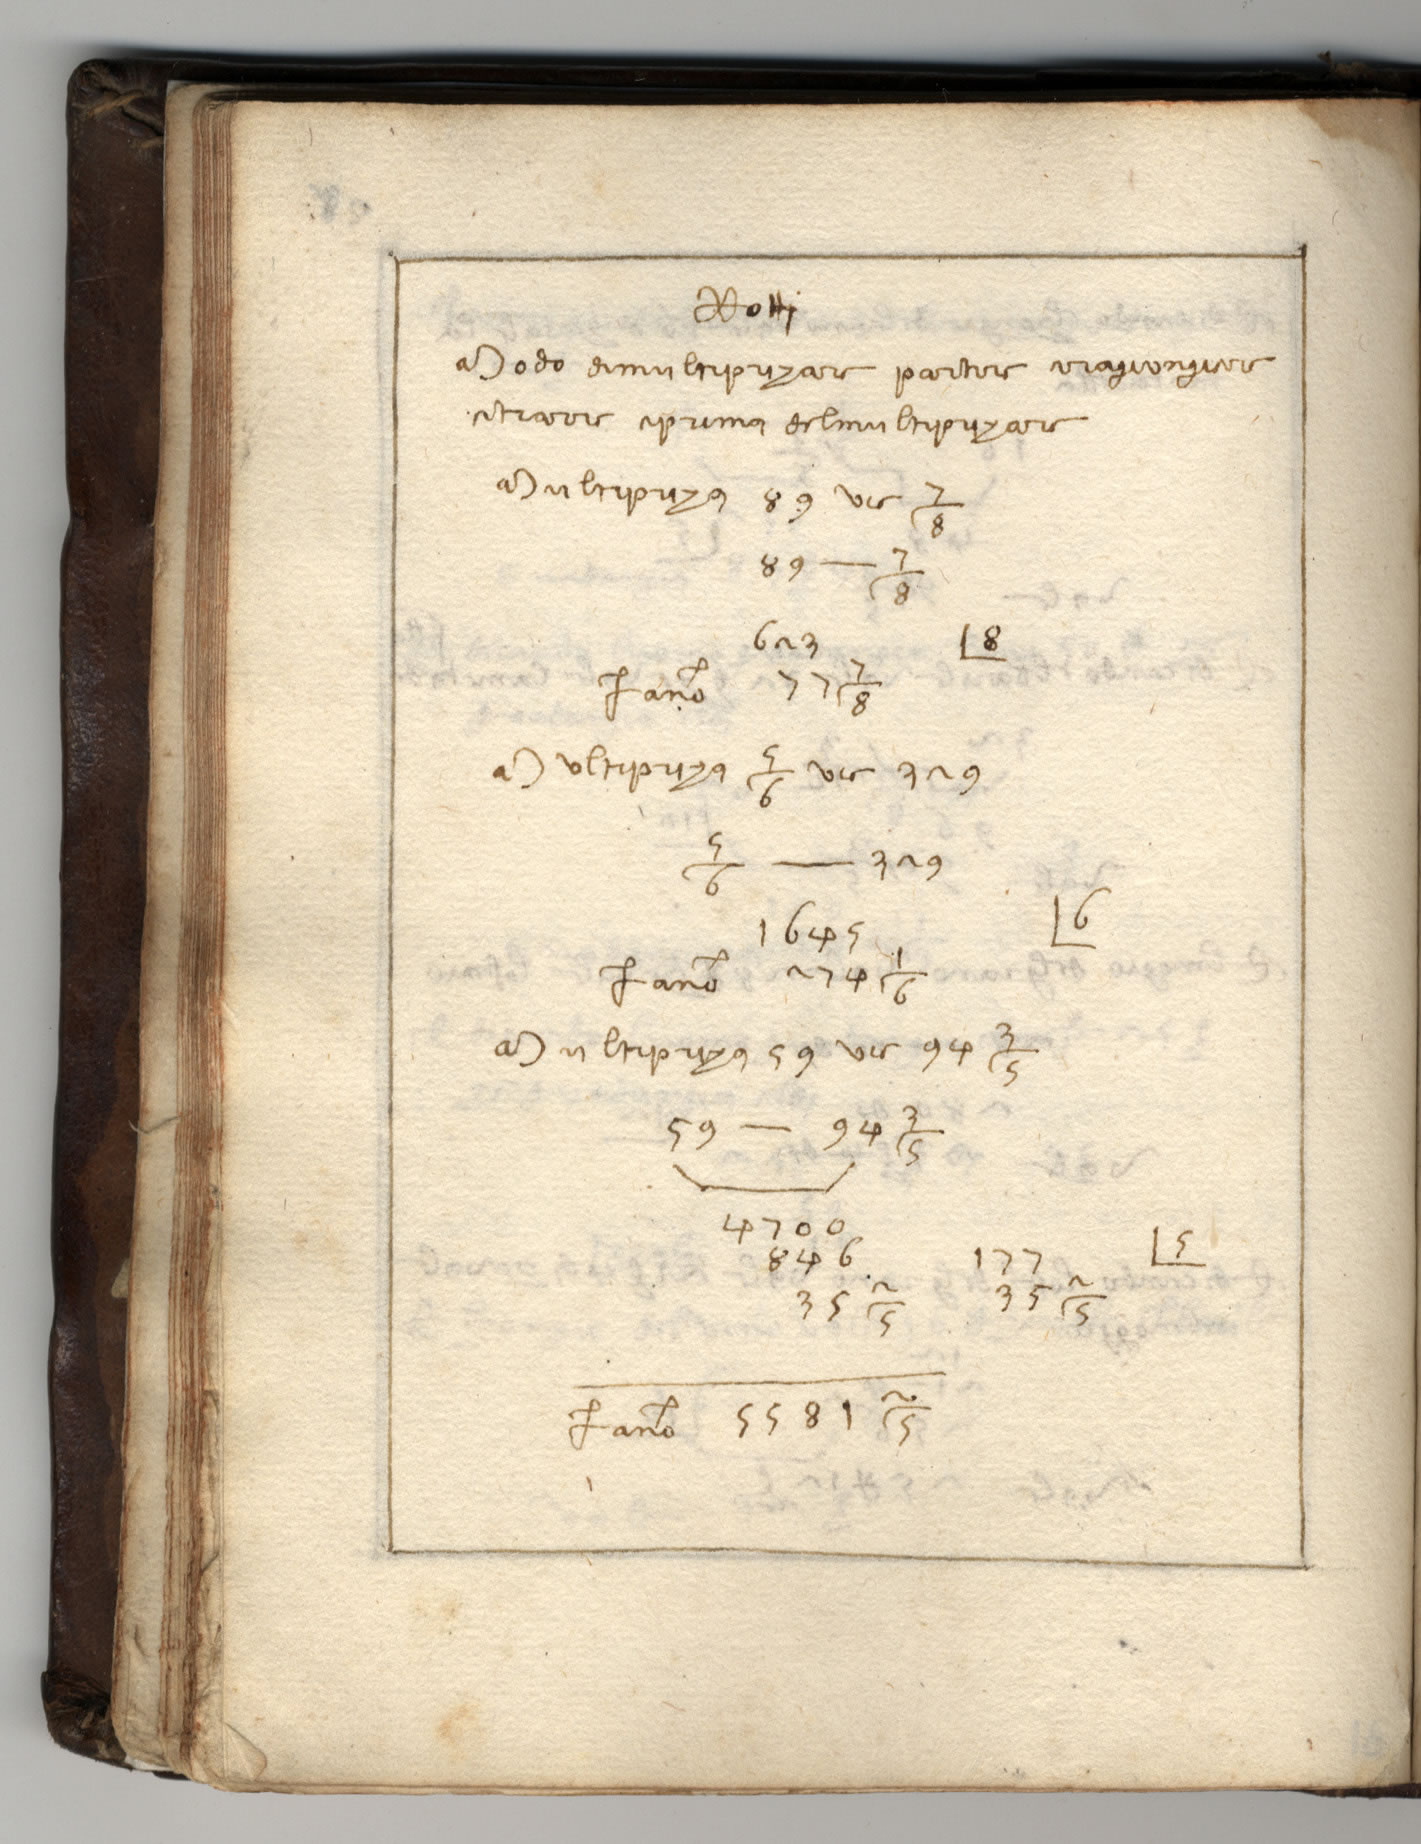 Rotti
Modo dimultiprizare partire eragiongiere
etrarre eprima delmultiprizare
Multipriza 89 vie 7/8
89 — 7/8
623 8
Fano 77 7/8
Multipriza 5/6 vie 329
5/6 — 329
1645 6
Fano 274 1/6
Multipriza 59 vie 94 3/5
59 — 94 3/5
4700
846 177 5
35 2/5 35 2/5
Fano 5581 2/5